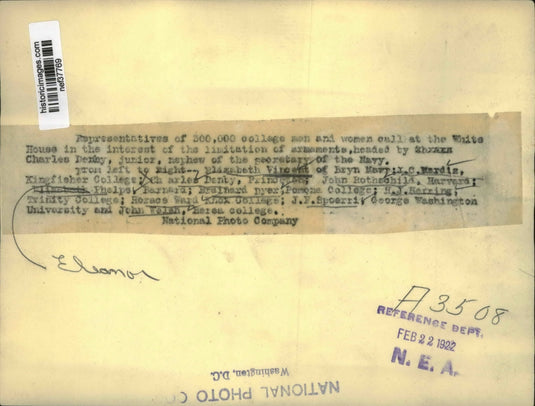 historicimages.com
nef37769
Representatives of 300,000 college men and women call at the White
House in the interest of the limitation of armaments, headed by
Charles Denby, junior, nephew of the secretary of the Navy.
From left to right-- Elizabeth Vincent of Bryn Mawr; Y.C.
Kingfisher College; Charles Denby, John Rothschild, Harvard;
Phelps, Barnard; Brainard Dyer, Pomona College; H.J.
Trinity College; Horace Ward Knox College; J.F. Spoerri, George Washington
University and John Welsh, Berea college.
National Photo Company
Eleanor
A3508
REFERENCE DEPT.
FEB 22 1922
N. E. A.
NATIONAL PHOTO CO
Washington, D.C.